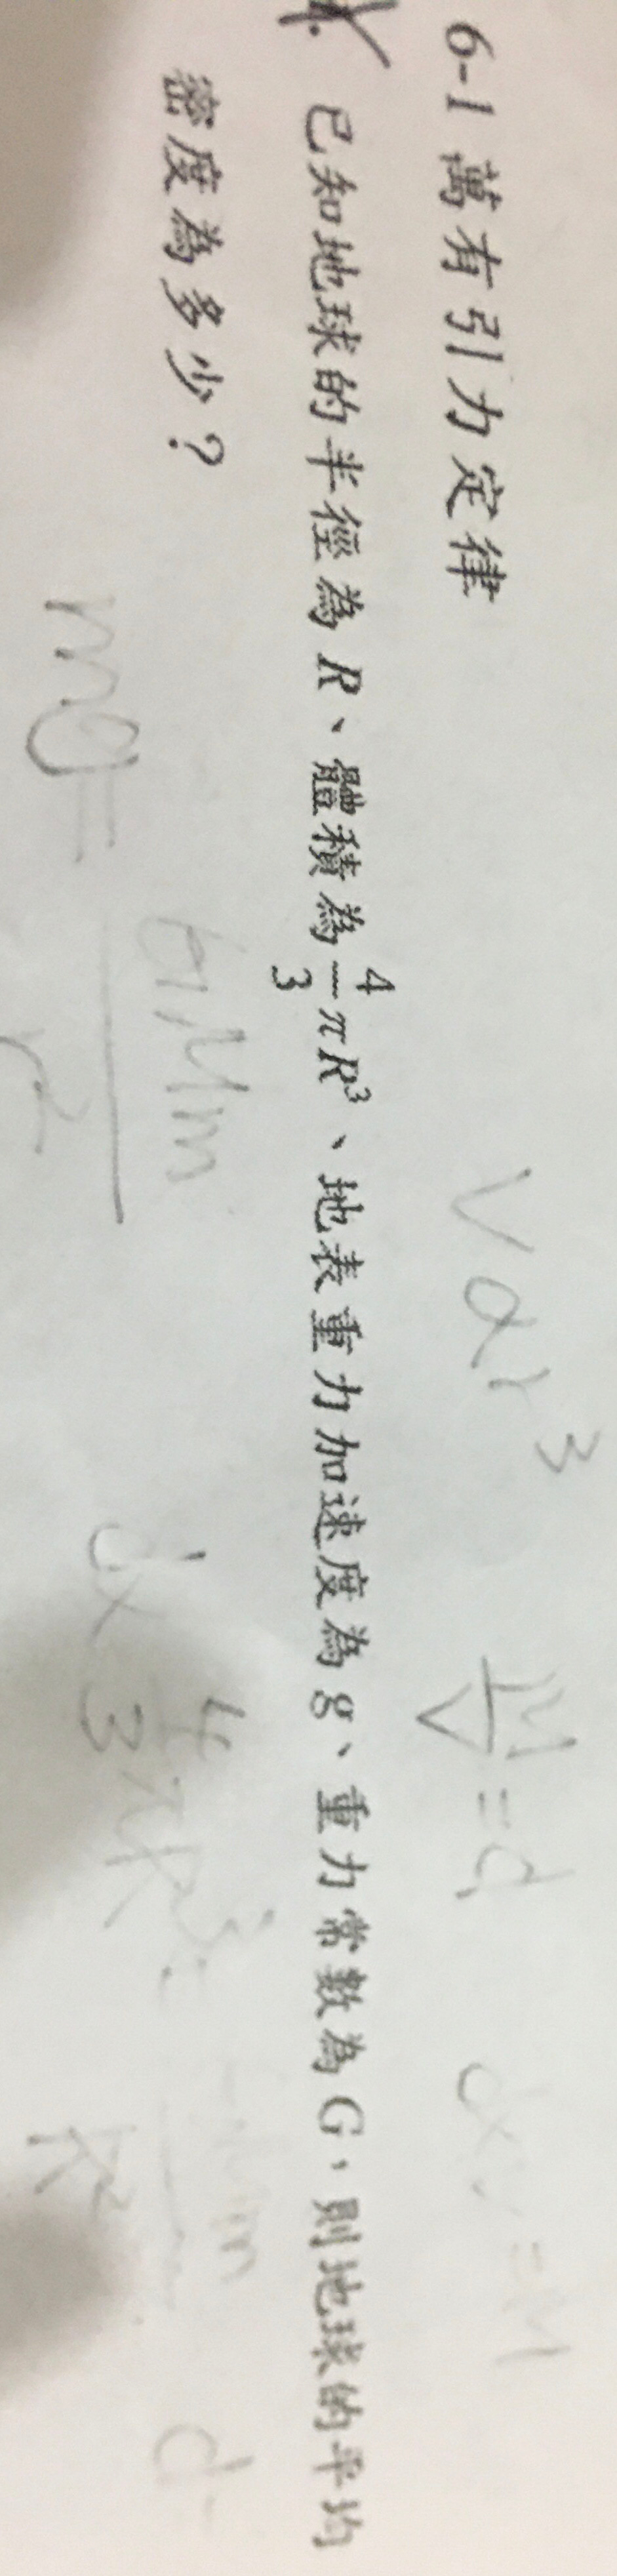 6-1 萬有引力定律
已知地球的半徑為 R、體積為 4/3 πR³、地表重力加速度為 g、重力常數為 G,則地球的平均
密度為多少?
V α r³
M/V = d
mg = GMm/r²